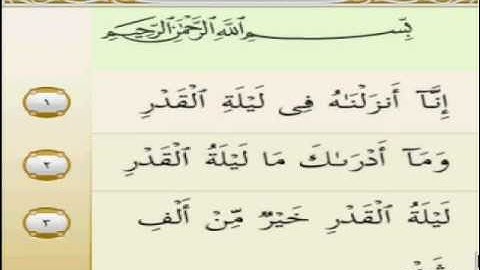 بِسْمِ ٱللَّهِ ٱلرَّحْمَٰنِ ٱلرَّحِيمِ
١ إِنَّآ أَنزَلْنَٰهُ فِى لَيْلَةِ ٱلْقَدْرِ
٢ وَمَآ أَدْرَىٰكَ مَا لَيْلَةُ ٱلْقَدْرِ
٣ لَيْلَةُ ٱلْقَدْرِ خَيْرٌ مِّنْ أَلْفِ